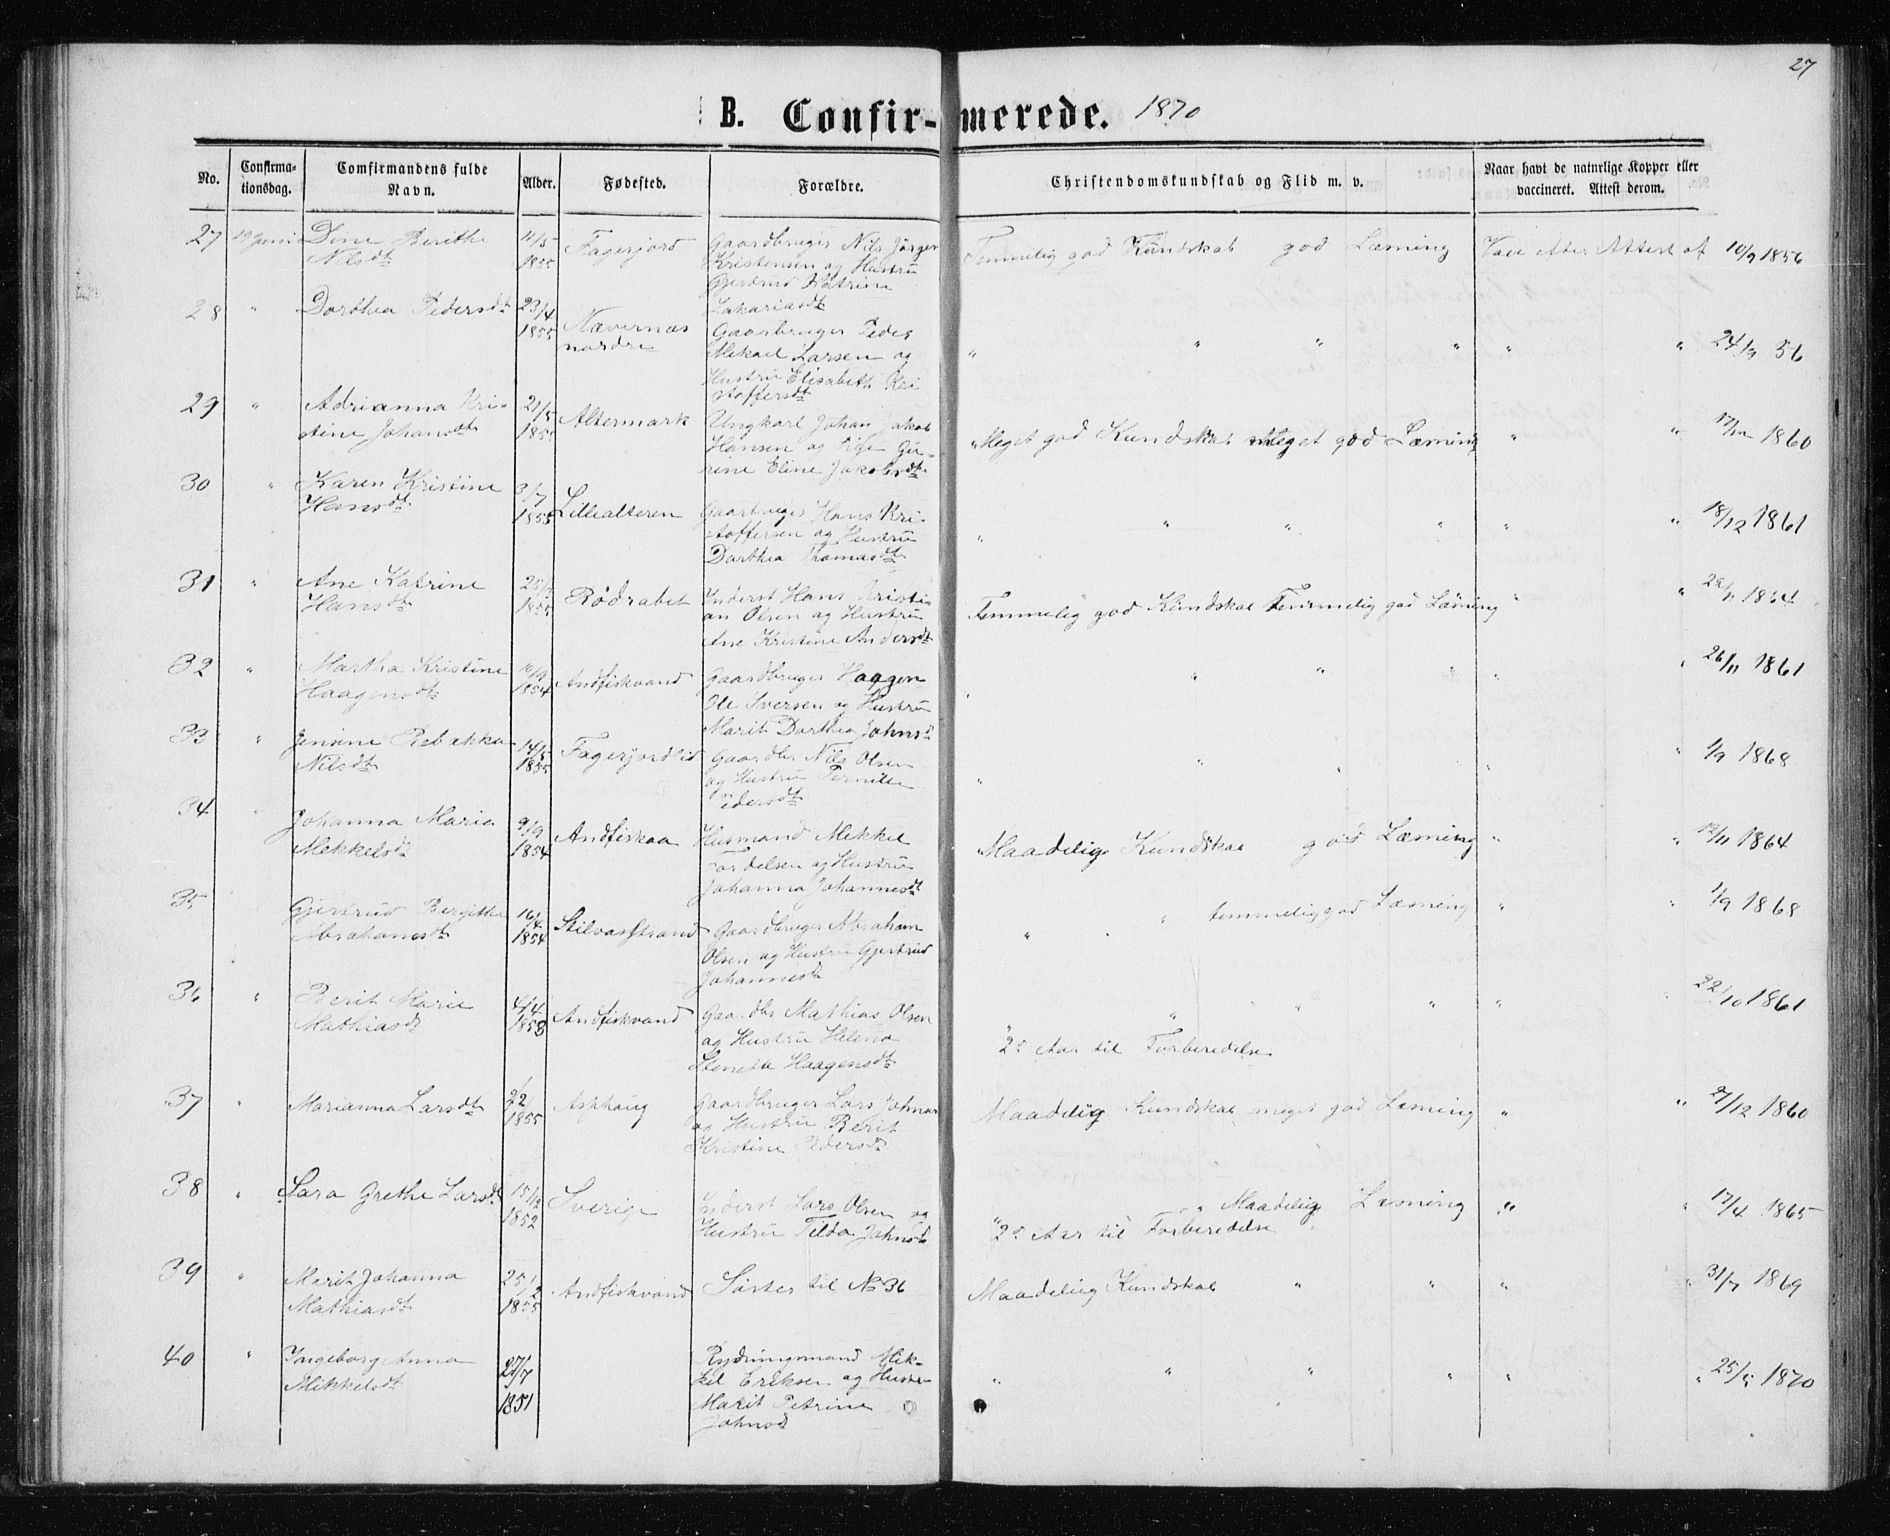 27
B. Confir-merede. 1870
No. Confirma-tionsdag. Comfirmandens fulde Navn. Alder. Fødested. Forældre. Christendomskundskab og Flid m. v. Naar havt de naturlige Kopper eller vaccineret. Attest derom.
27 19 Juni Dine Berithe 11/5 Fagerjord Gaardbruger Nils Jörgen Temmelig god Kundskab god Læsning Vac. efter Attest af 10/9 1856
Nilsdt 1855 Kristensen og Hustru
Gjertrud Katrine
Zakariasdt
28 " Dorthea Pedersdt 23/4 Nævernæs Gaarbruger Peder " " " " " " 24/9 56
1855 nordre Mekael Larsen og
Hustru Elisabeth Kri
stoffersdt
29 " Adrianna Kri- 21/5 Altermark Ungkarl Johan Jakob " Meget god Kundskab meget god Læsning " " 17/12 1860
stine Johansdt 1855 Hansen og Pige Gu-
rine Eline Jakobsdt
30 " Karen Kristine 3/7 Lillealteren Gaarbruger Hans Kri- " " " " " " 18/12 1861
Hansdt 1855 stoffersen og Hustru
Dorthea Thomasdt
31 " Ane Katrine Rödrabet Inderst Hans Kristi- Temmelig god Kundskab Temmelig god Læsning " " 1854
Hansdt 1855 an Olsen og Hustru
Ane Kristine Andersdt
32 " Martha Kristine 1854 Andfiskvand Gaardbruger Haagen " " " " " " 26/11 1861
Haagensdt Ole Iversen og Hustru
Marit Dorthea Johnsdt
33 " Jensine Rebekka 14/5 Fagerjordlid Gaardbr Nils Olsen " " " " " 1/9 1868
Nilsdt 1855 og Hustru Pernille
Pedersdt
34 " Johanna Maria 9/9 Andfiskaa Husmand Mekkel " Maadelig Kundskab god Læsning " " 12/11 1864
Mekkelsdt 1854 Tordelsen og Hustru
Johanna Johannesdt
35 Gjertrud Bergithe 16/4 Stilvasstrand Gaardbruger Abraham " " temmelig god Læsning " " 1/9 1868
Abrahamsdt 1854 Olsen og Hustru Gjertrud
Johannesdt
36 " Berit Marie 4/4 Andfiskvand Gaardbr Mathias Olsen " " " " " " 22/10 1861
Mathiasdt 1853 og Hustru Helena 2 Aar til Forberedelse
Haagensdt
37 " Marianna Larsdt 2/2 Askhaug Gaardbruger Lars Johnsen Maadelig Kundskab meget god Læsning " " 27/12 1860
1855 og Hustru Berit
Kristine Pedersdt
38 " Sara Grethe Larsdt 15/12 Sverige Inderst Lars Olsen og " " Maadelig Læsning " " 17/4 1865
1852 Hustru Tilda Johnsdt 2 Aar til Forberedelse
39 " Marit Johanna 25/2 Andfiskvand Söster til No 36 Maadelig Kundskab " " " " 31/7 1869
Mathiasdt 1855
40 " Ingeborg Anna 27/7 Rydningsmand Mik- " " " " " " 25/5 1870
Mikkelsdt 1851 kel Eriksen og Hustru
Marit Petrine
Johnsdt